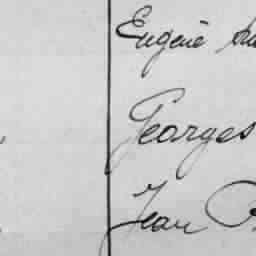 Eugène
Georges
Jean